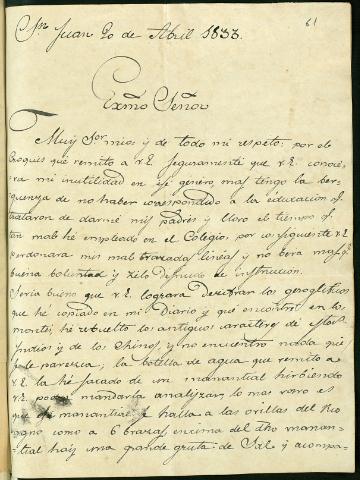 61
Sn Juan 20 de Abril 1838.
Exmo Señor
Muy Sor mio y de todo mi respeto: por el
Croques que remito a V.E. seguramente que V.E. conoce-
ra mi inutilidad en ese genero, mas tengo la ber-
guenza de no haber correspondido a la educacion q.
trataron de darme mis padres y lloro el tiempo q.
tan mal hé empleado en el Colegio, por consiguiente V.E.
perdonara mis mal trazadas lineas y no bera mas q.
buena boluntad y zelo desnudo de instruccion.
Seria bueno que V.E. lograra desifran los geroglificos
que hé copiado en mi Diario y que encontre en los
montes, hé rebuelto los antiguos carateres de estos
Indios y de los Chinos, y no encuentro nada que
se le paresca; la botella de agua que remito a
V.E. la hé sacado de un manantial hirbiendo
V.E. podra mandarla analizar, lo mas raro es
que manantial se halla a las orillas del Rio
como a 6 brazas, encima del dho manan-
tial hay una grande gruta de Sal y acompa-